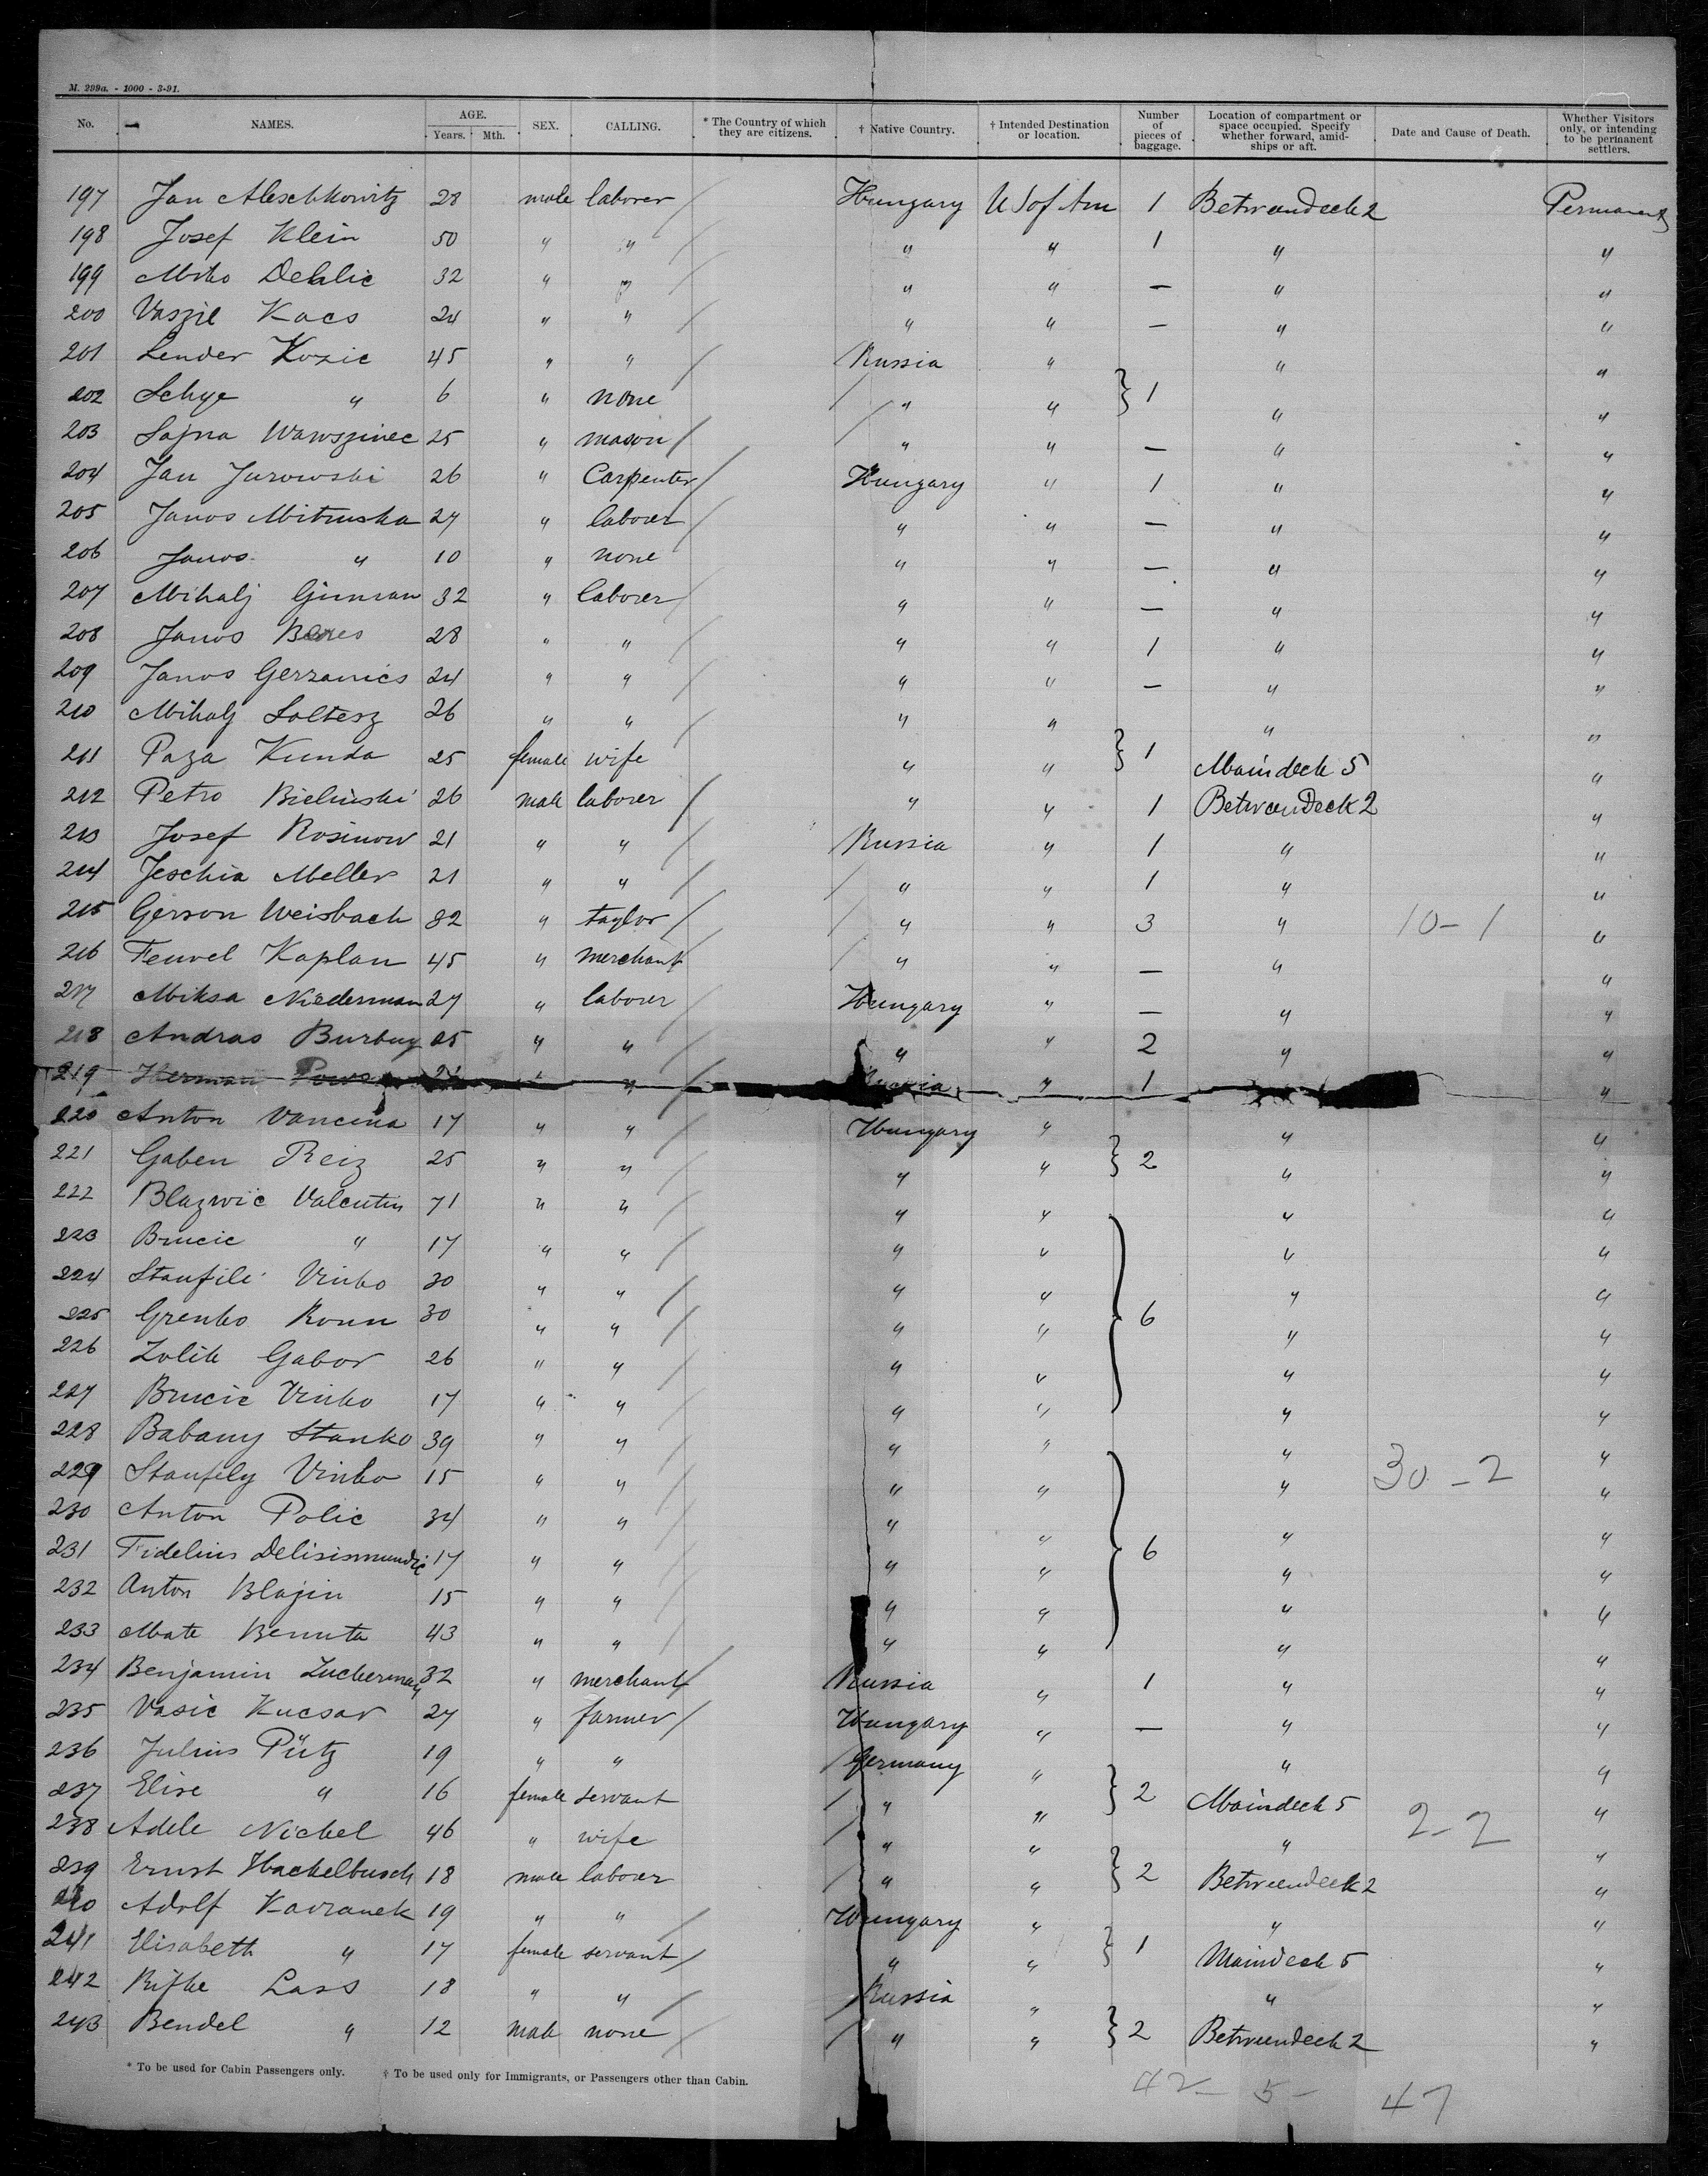 M. 299a. - 1000 - 3-91.
No. NAMES. AGE. Years. Mth. SEX. CALLING. * The Country of which they are citizens. † Native Country. † Intended Destination or location. Number of pieces of baggage. Location of compartment or space occupied. Specify whether forward, amidships or aft. Date and Cause of Death. Whether Visitors only, or intending to be permanent settlers.
197 Jan Aleschkowitz 28 male laborer / Hungary U S of Am 1 Betweendeck 2 Permanent
198 Josef Klein 50 " " / " " 1 " "
199 Miko Dehlic 32 " " / " " — " "
200 Vaszil Kacs 24 " " / " " — " "
201 Lender Kozic 45 " " / Russia " " "
202 Schye " 6 " none / " " } 1 " "
203 Sajna Wawszinec 25 " mason / / " " — " "
204 Jan Jurowski 26 " Carpenter / Hungary " 1 " "
205 Janos Mitruska 27 " laborer / " " — " "
206 Janos " 10 " none " " — " "
207 Mihalj Gimran 32 " laborer / " " — " "
208 Janos 28 " " / " " 1 " "
209 Janos Gerzanics 24 " " / " " — " "
210 Mihalj Soltesz 26 " " / " " " "
211 Paza Kunda 25 female wife " " } 1 Maindeck 5 "
212 Petro Bielinski 26 male laborer / " " 1 Betweendeck 2 "
213 Josef Rosinow 21 " " / Russia " 1 " "
214 Jeschia Meller 21 " " / / " " 1 " "
215 Gerson Weisbach 82 " taylor / / " " 3 " 10-1 "
216 Feuvel Kaplan 45 " merchant / / " " — " "
217 Miksa Niederman 27 " laborer / Hungary " — " "
218 Andras Burbuy 25 " " / " " 2 " "
219 Herman " " / Russia " 1 "
220 Anton Vancina 17 " " / Hungary " " "
221 Gaben Reiz 25 " " / " " } 2 " "
222 Blazwic Valentin 71 " " / " " " "
223 Brucic " 17 " " / " " " "
224 Staufili Vinko 30 " " / " " " "
225 Grenko Roun 30 " " / " " } 6 " "
226 Zolik Gabor 26 " " / " " " "
227 Brucic Vinko 17 " " / " " " "
228 Babany Stanko 39 " " / " " " "
229 Staufely Vinko 15 " " / " " " 30-2 "
230 Anton Polic 34 " " / " " " "
231 Fidelius Delisismundic 17 " " / " " } 6 " "
232 Anton Blajin 15 " " / " " " "
233 Mate Benuta 43 " " / " " " "
234 Benjamin Zuckerman 32 " merchant / Russia " 1 " "
235 Vasic Kucsar 27 " farmer / Hungary " — " "
236 Julius Pütz 19 " " / Germany " " "
237 Elise " 16 female servant / " " } 2 Maindeck 5 "
238 Adele Nickel 46 " wife / " " " 2-2 "
239 Ernst Hackelbusch 18 male laborer / " " } 2 Betweendeck 2 "
240 Adolf Kavranek 19 " " / Hungary " " "
241 Elisabeth " 17 female servant / " " } 1 Maindeck 5 "
242 Rifke Lass 18 " " / / Russia " " "
243 Bendel " 12 male none / / " " } 2 Betweendeck 2 "
* To be used for Cabin Passengers only. † To be used only for Immigrants, or Passengers other than Cabin.
42- 5- 47